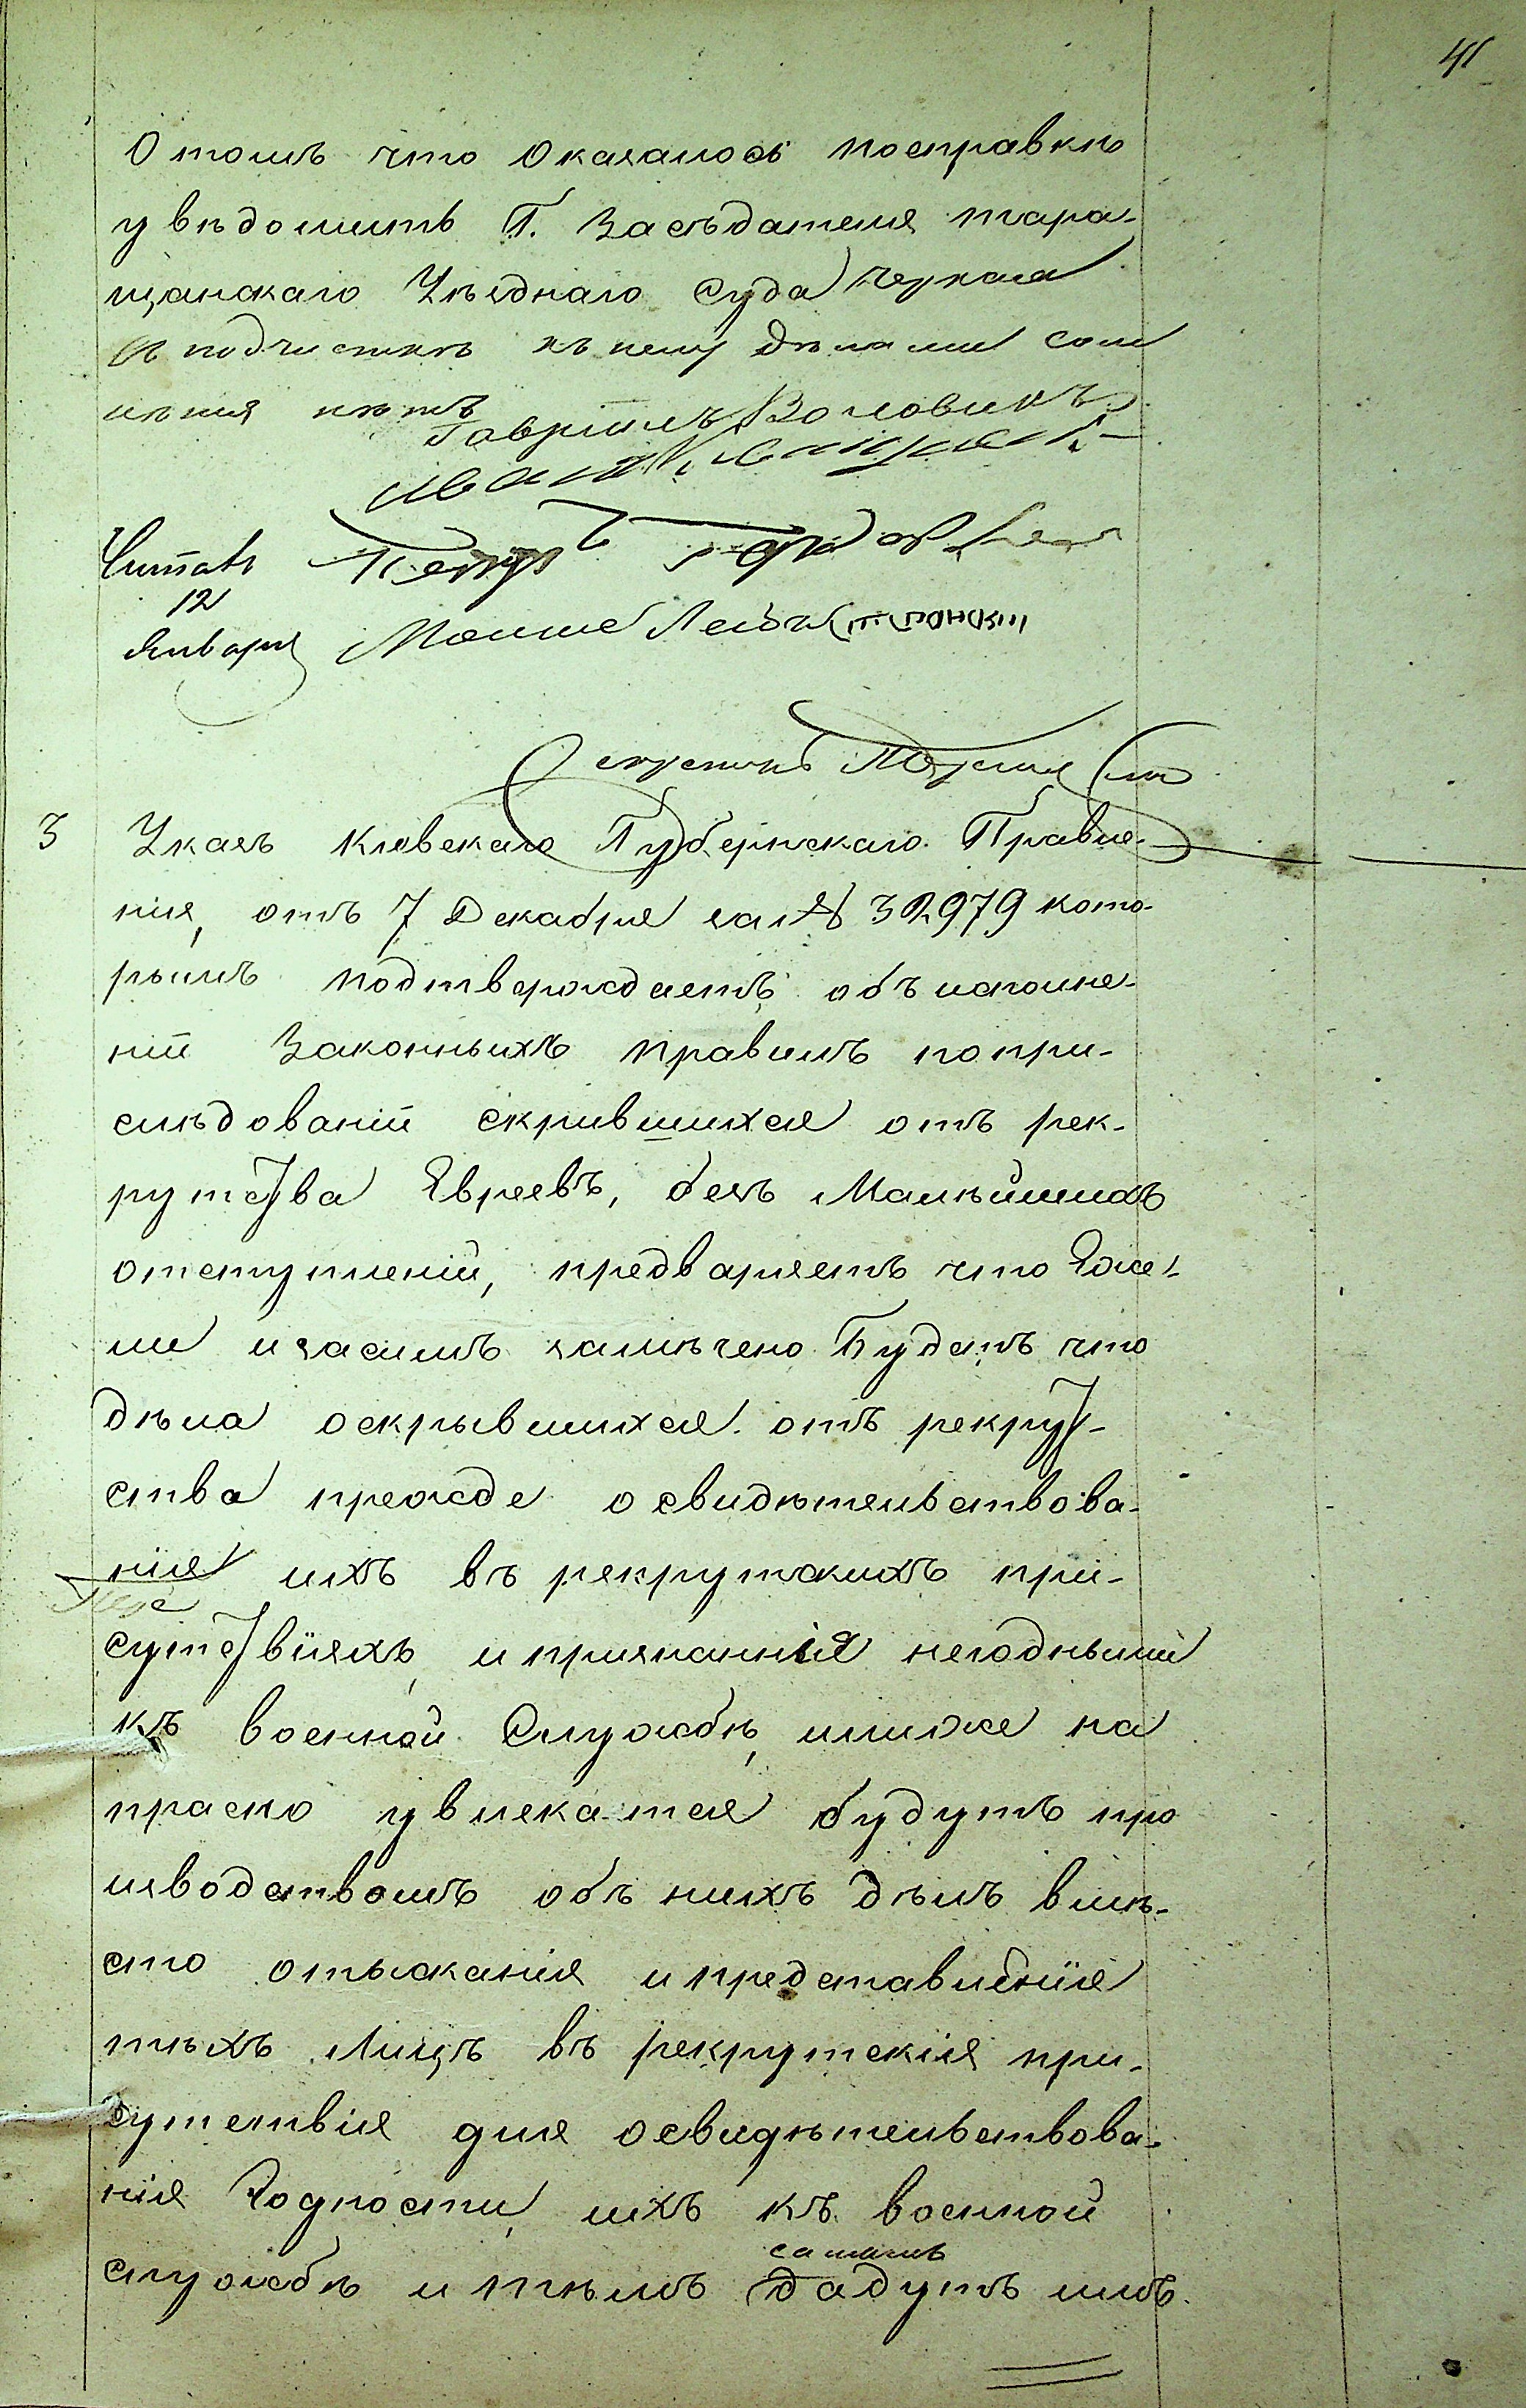 41
О томъ что Оказалось посправкѣ
увѣдомить Г. Засѣдателя тара-
щанскаго Уѣзднаго Суда
въ подчисткѣ къ нему сом
нѣния нѣтъ
Гавриилъ Воловикъ
Иванъ
Читалъ Петръ
12
Января Мошко Лейба
Секретарь
3 Указъ Киевскаго Губернскаго Правле-
нія, отъ 7 Декабря за № 32979 кото-
рымъ подтверждаетъ объ исполне-
ніи Законныхъ правилъ попри-
слѣдованіи скрившихся отъ рек-
рутства Евреевъ, безъ Малѣйшихъ
отступленій, предваряетъ что Еже-
ли изасимъ замѣчено Будетъ что
дѣла оскрывшихся отъ рекрут-
ства прежде освидѣтельствова-
нія ихъ въ рекрутскихъ при-
сутствіяхъ, и признанія негодными
къ военной Службѣ, илиже на
прасно увлекатся будутъ про
изводствомъ объ нихъ дѣлъ вмѣ-
сто отысканія и представленія
тѣхъ Лицъ въ рекрутскія при-
сутствія для освидѣтельствова-
нія Годности, ихъ къ военной
самымъ
службѣ и тѣмъ дадутъ имъ